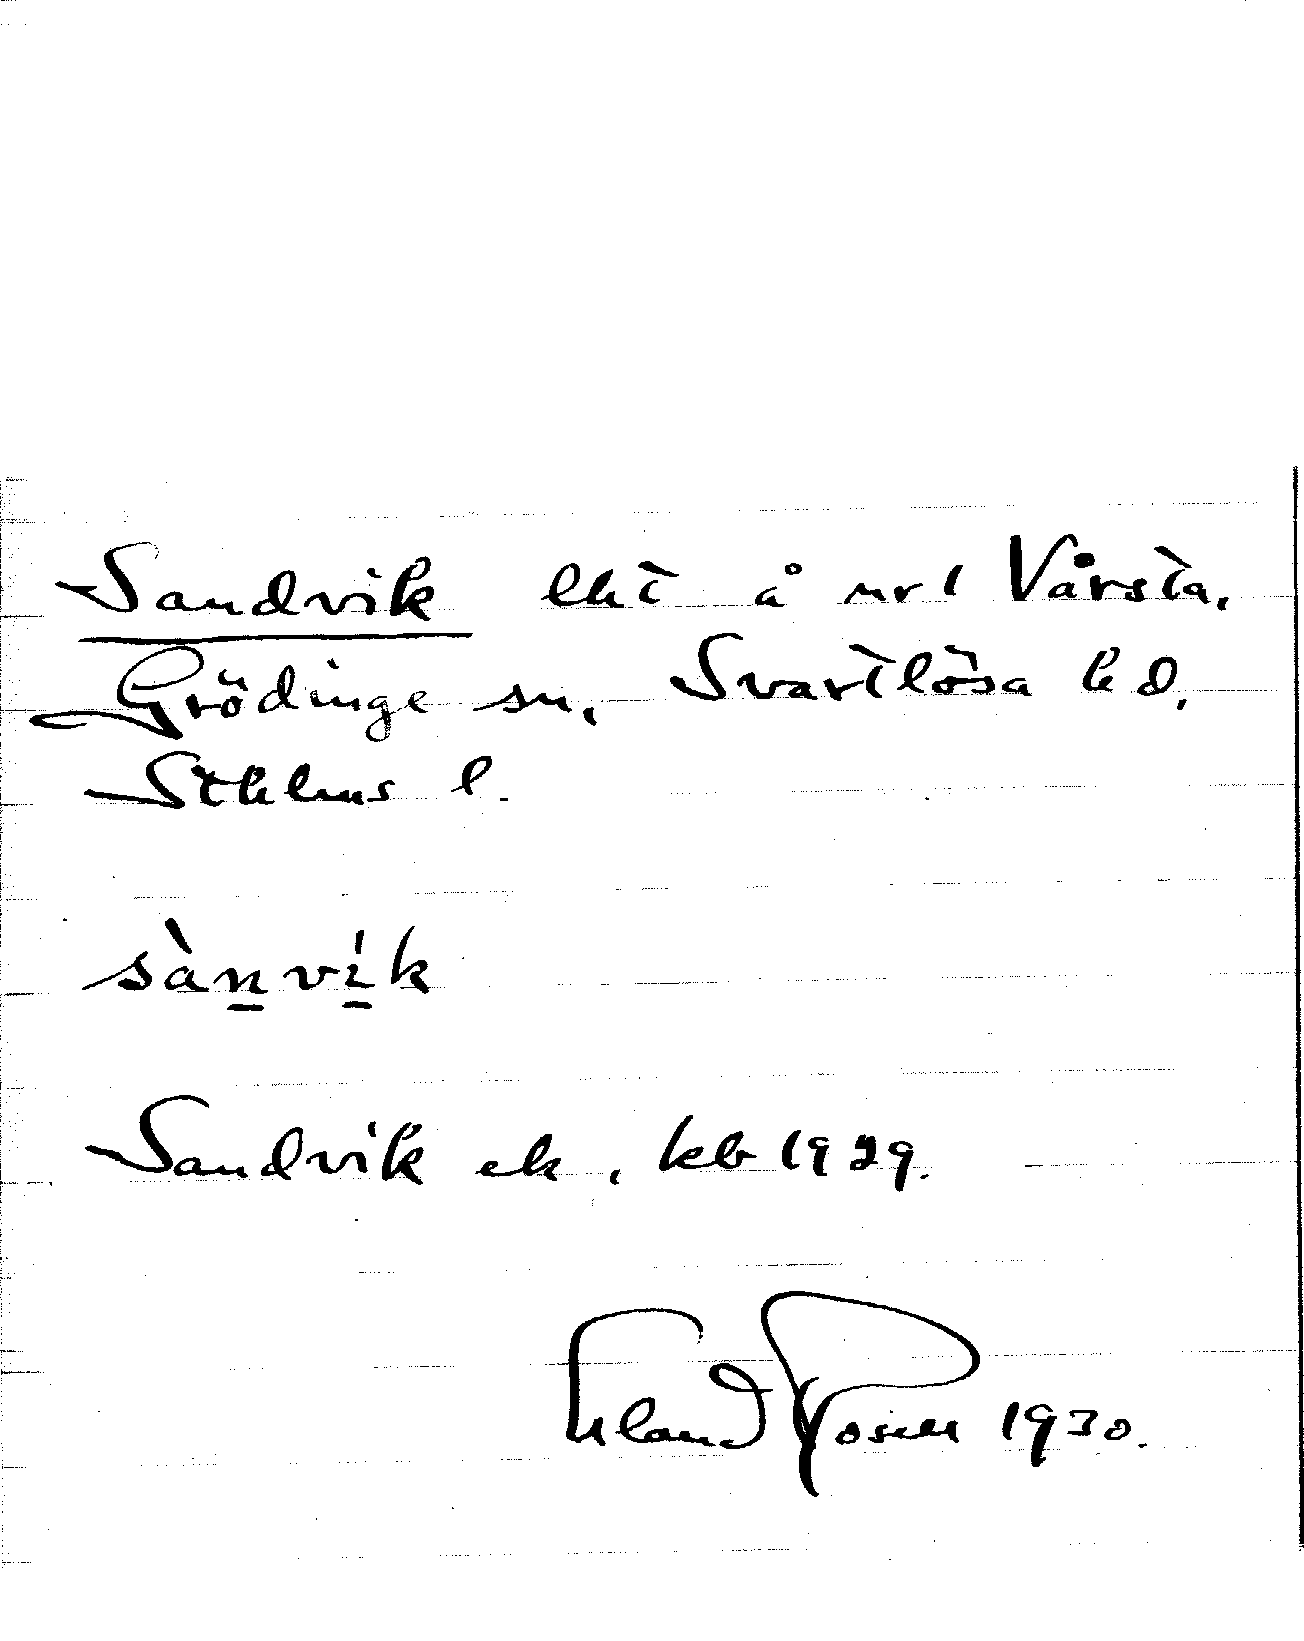 Sandvik lht å nr 1 Vårsta,
Grödinge sn, Svartlösa hd,
Sthlms l.
sànvik
Sandvik ek, keb 1929.
Erland Rosell 1930.